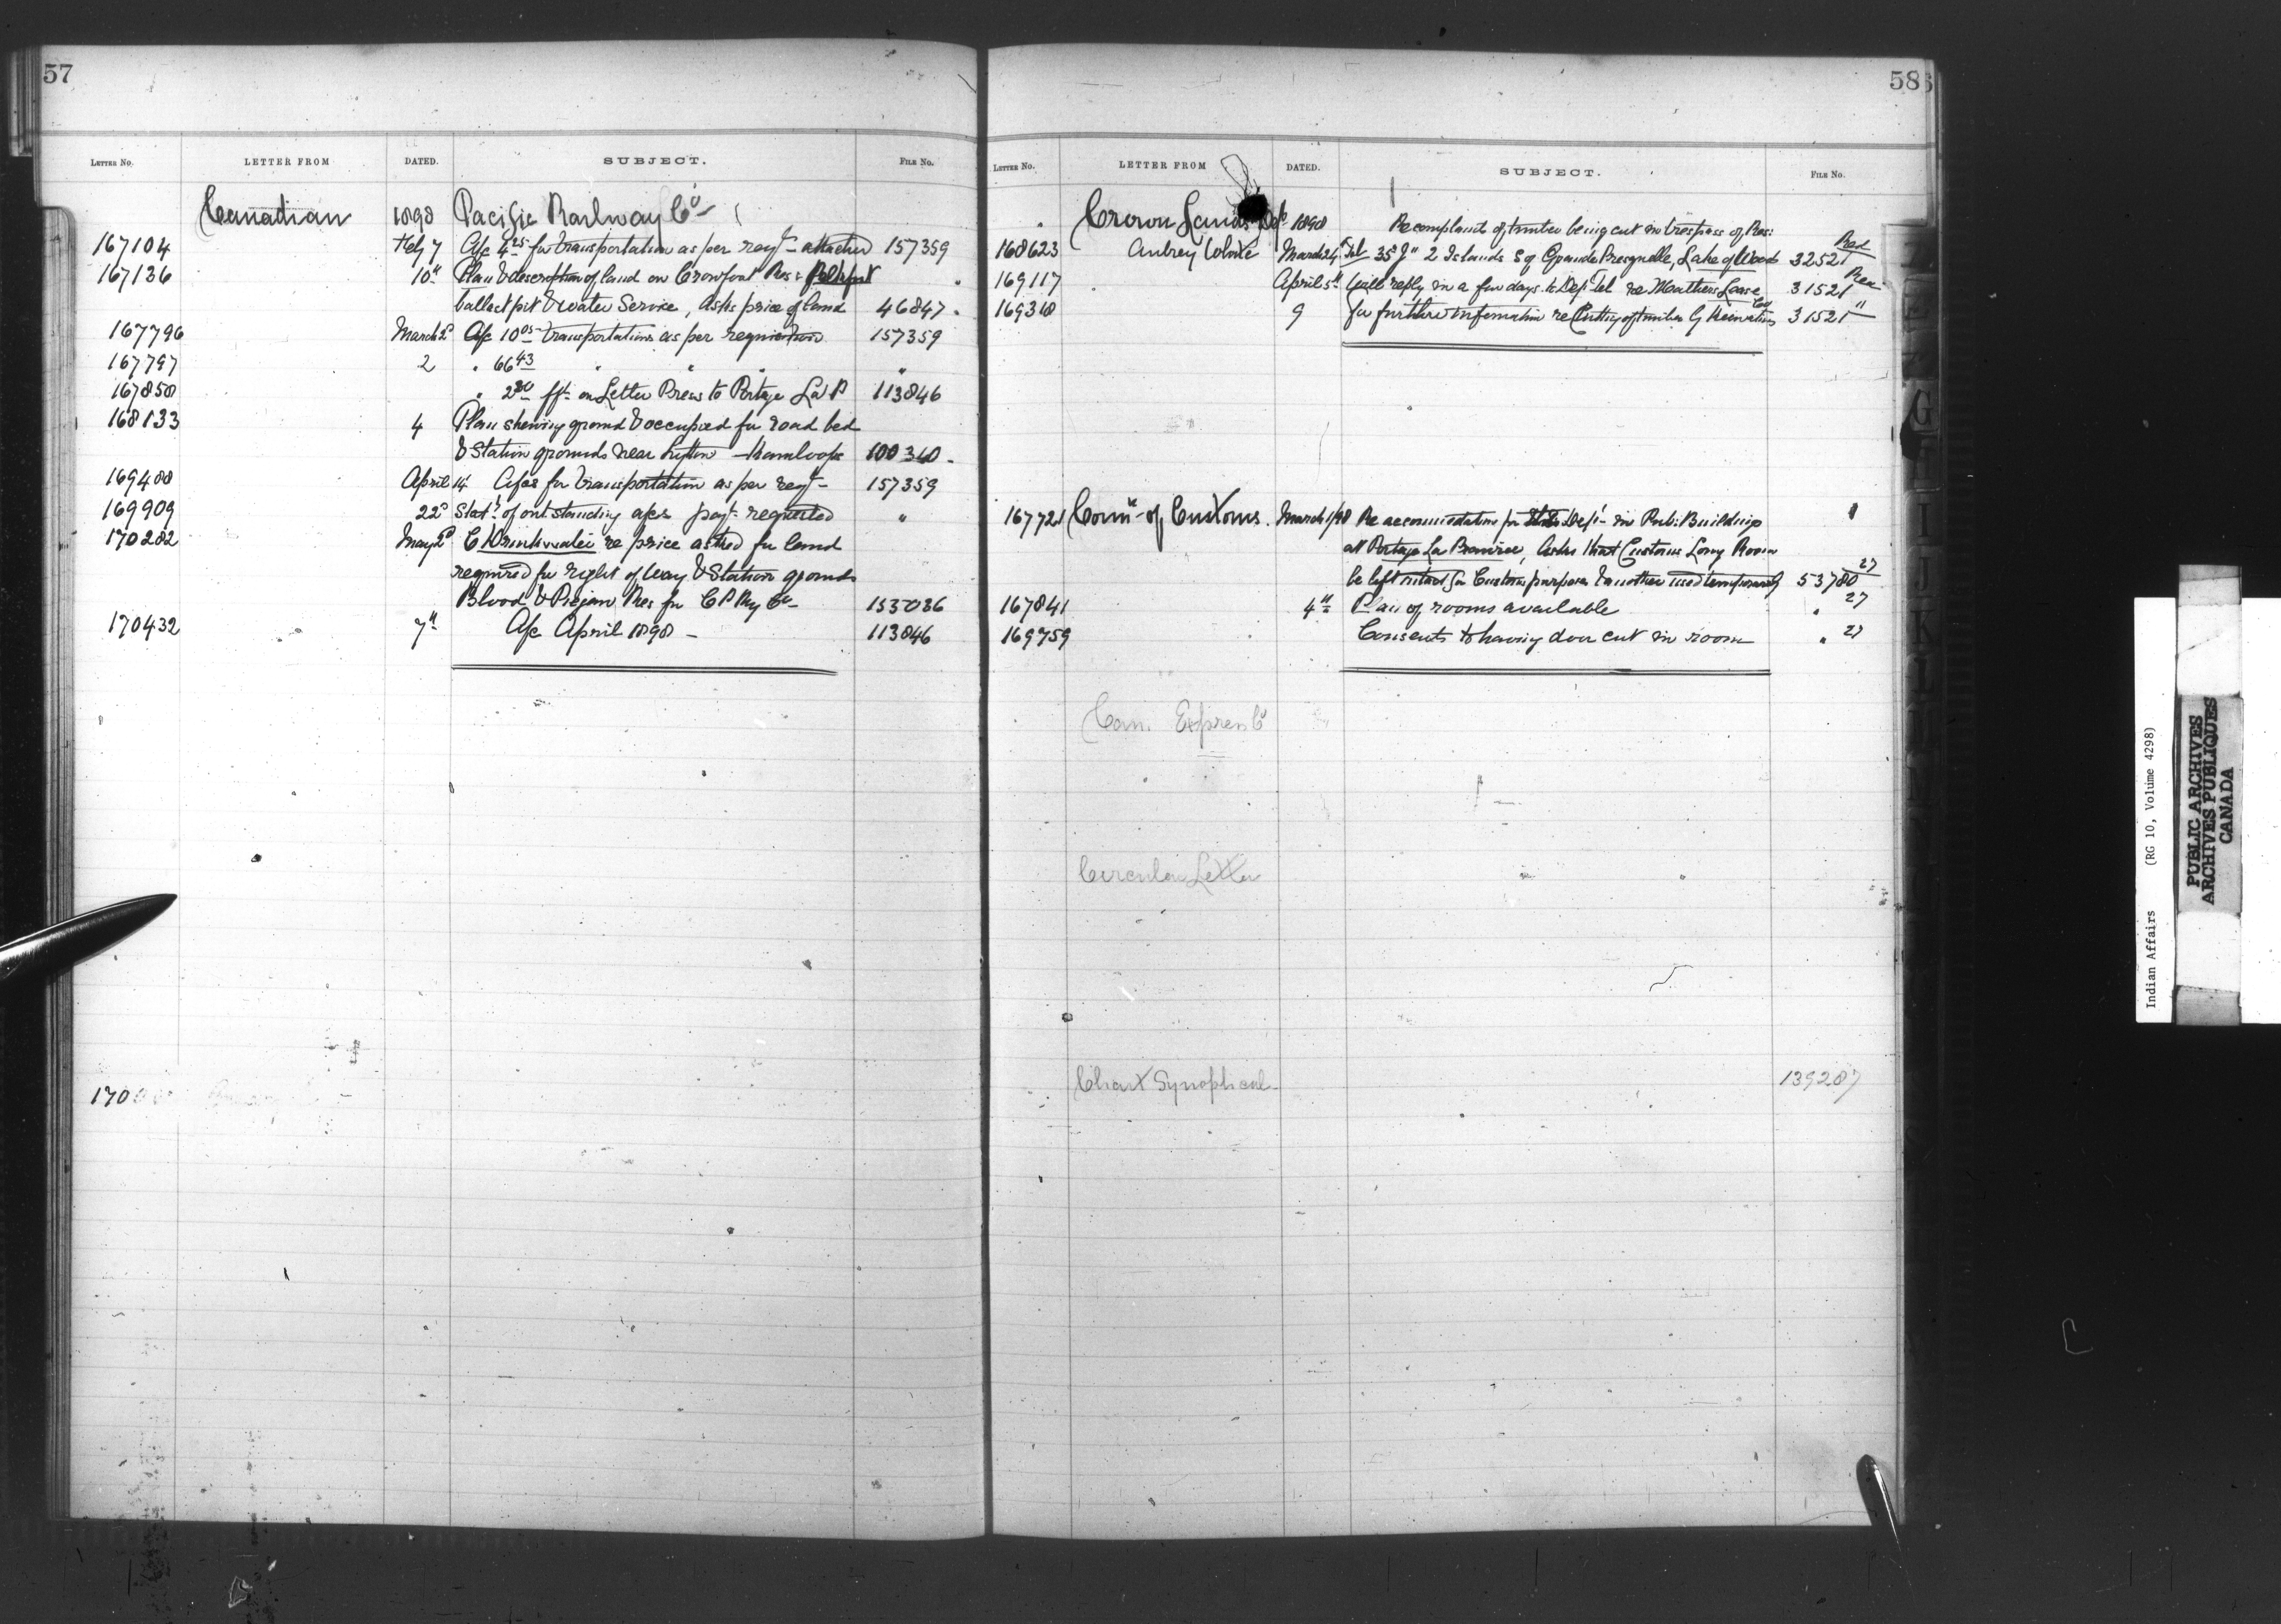 57
LETTER No. LETTER FROM DATED. SUBJECT. FILE No.
Canadian 1898 Pacific Railway Co
167104 Feby 7 A/c 4.25 for transportation as per reqt attached 157359
167136 10" Plan & description of land on Crowfoot Res:
ballast pit & water Service, Asks price of land 46847
167796 March 2d A/c 10.05 transportation as per requisition 157359
167797 2 " 66.43 " " " "
167858 " 2.80 frt on Letter Press to Portage La P 113846
168133 4 Plan shewing ground occupied for road bed
& Station grounds near Lytton Kamloops 100340
169488 April 14 A/cs for transportation as per reqt 157359
169909 22d Statt of outstanding a/cs payt requested "
170282 May 2d C Drinkwater re price asked for land
required for right of Way & Station grounds
Blood & Piegan Res for C P Ry Co 153036
170432 7" A/c April 1898 113846
170
58
LETTER No. LETTER FROM DATED. SUBJECT. FILE No.
Crown Lands Dept 1898 Re complaint of timber being cut in trespass of Res:
168623 Aubrey White March 24 35 J" 2 Islands S of Grande Presquelle, Lake of Woods 32521 Red
169117 April 5" Will reply in a few days to Dep Tel re Mathers Lease 31521 Red
169318 9 for further information re Cutting of timber 31521 "
167721 Comr of Customs. March 1/98 Re accommodation for Dept in Pub: Building
at Portage La Prairie, Asks that Customs Long Room
be left intact for Customs purposes & another used temporarily 53780 27
167841 4" Plan of rooms available " 27
169759 Consents to having door cut in room " 27
Can. Express Co
Circular Letter
Chart Synoptical 139287
Indian Affairs (RG 10, Volume 4298)
PUBLIC ARCHIVES
ARCHIVES PUBLIQUES
CANADA